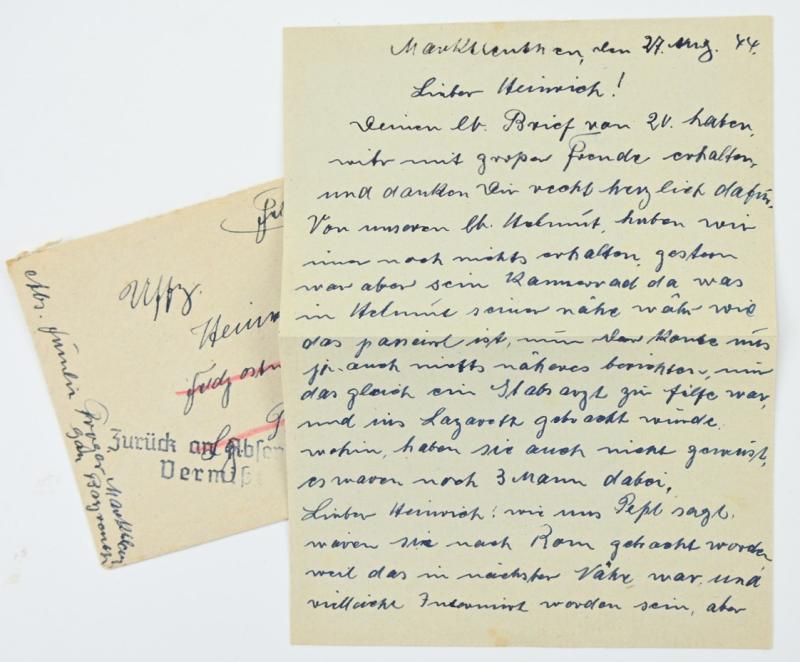 Marktleuthen, den 27. Aug. 44.
Lieber Heinrich!
Deinen lb. Brief von 20. haben,
wihr mit großer Freude erhalten,
und danken Dir recht herzlich dafür.
Von unseren lb. Helmut, haben wir
imer noch nichts erhalten, gestern
war aber sein Kammerrad da was
in Helmut seiner nähe wahr wie
das passeirt ist, nun der konte uns
ja auch nichts näheres berichten, nur
das gleich ein Stabsarzt zu hilfe war,
und ins Lazarett gebracht wurde.
wohin, haben sie auch nicht gewust,
es waren noch 3 Mann dabei,
Lieber Heinrich! wie uns Pepl sagt,
wären sie nach Rom gebracht worden
weil das in nächster Nähe war, und
vielleicht Internirt worden sein, aber
Uffz.
Heinr
Feldpostn
Zurück an Absen
Vermiß
Abs. Familie Marktleu
Gau Bayreuth